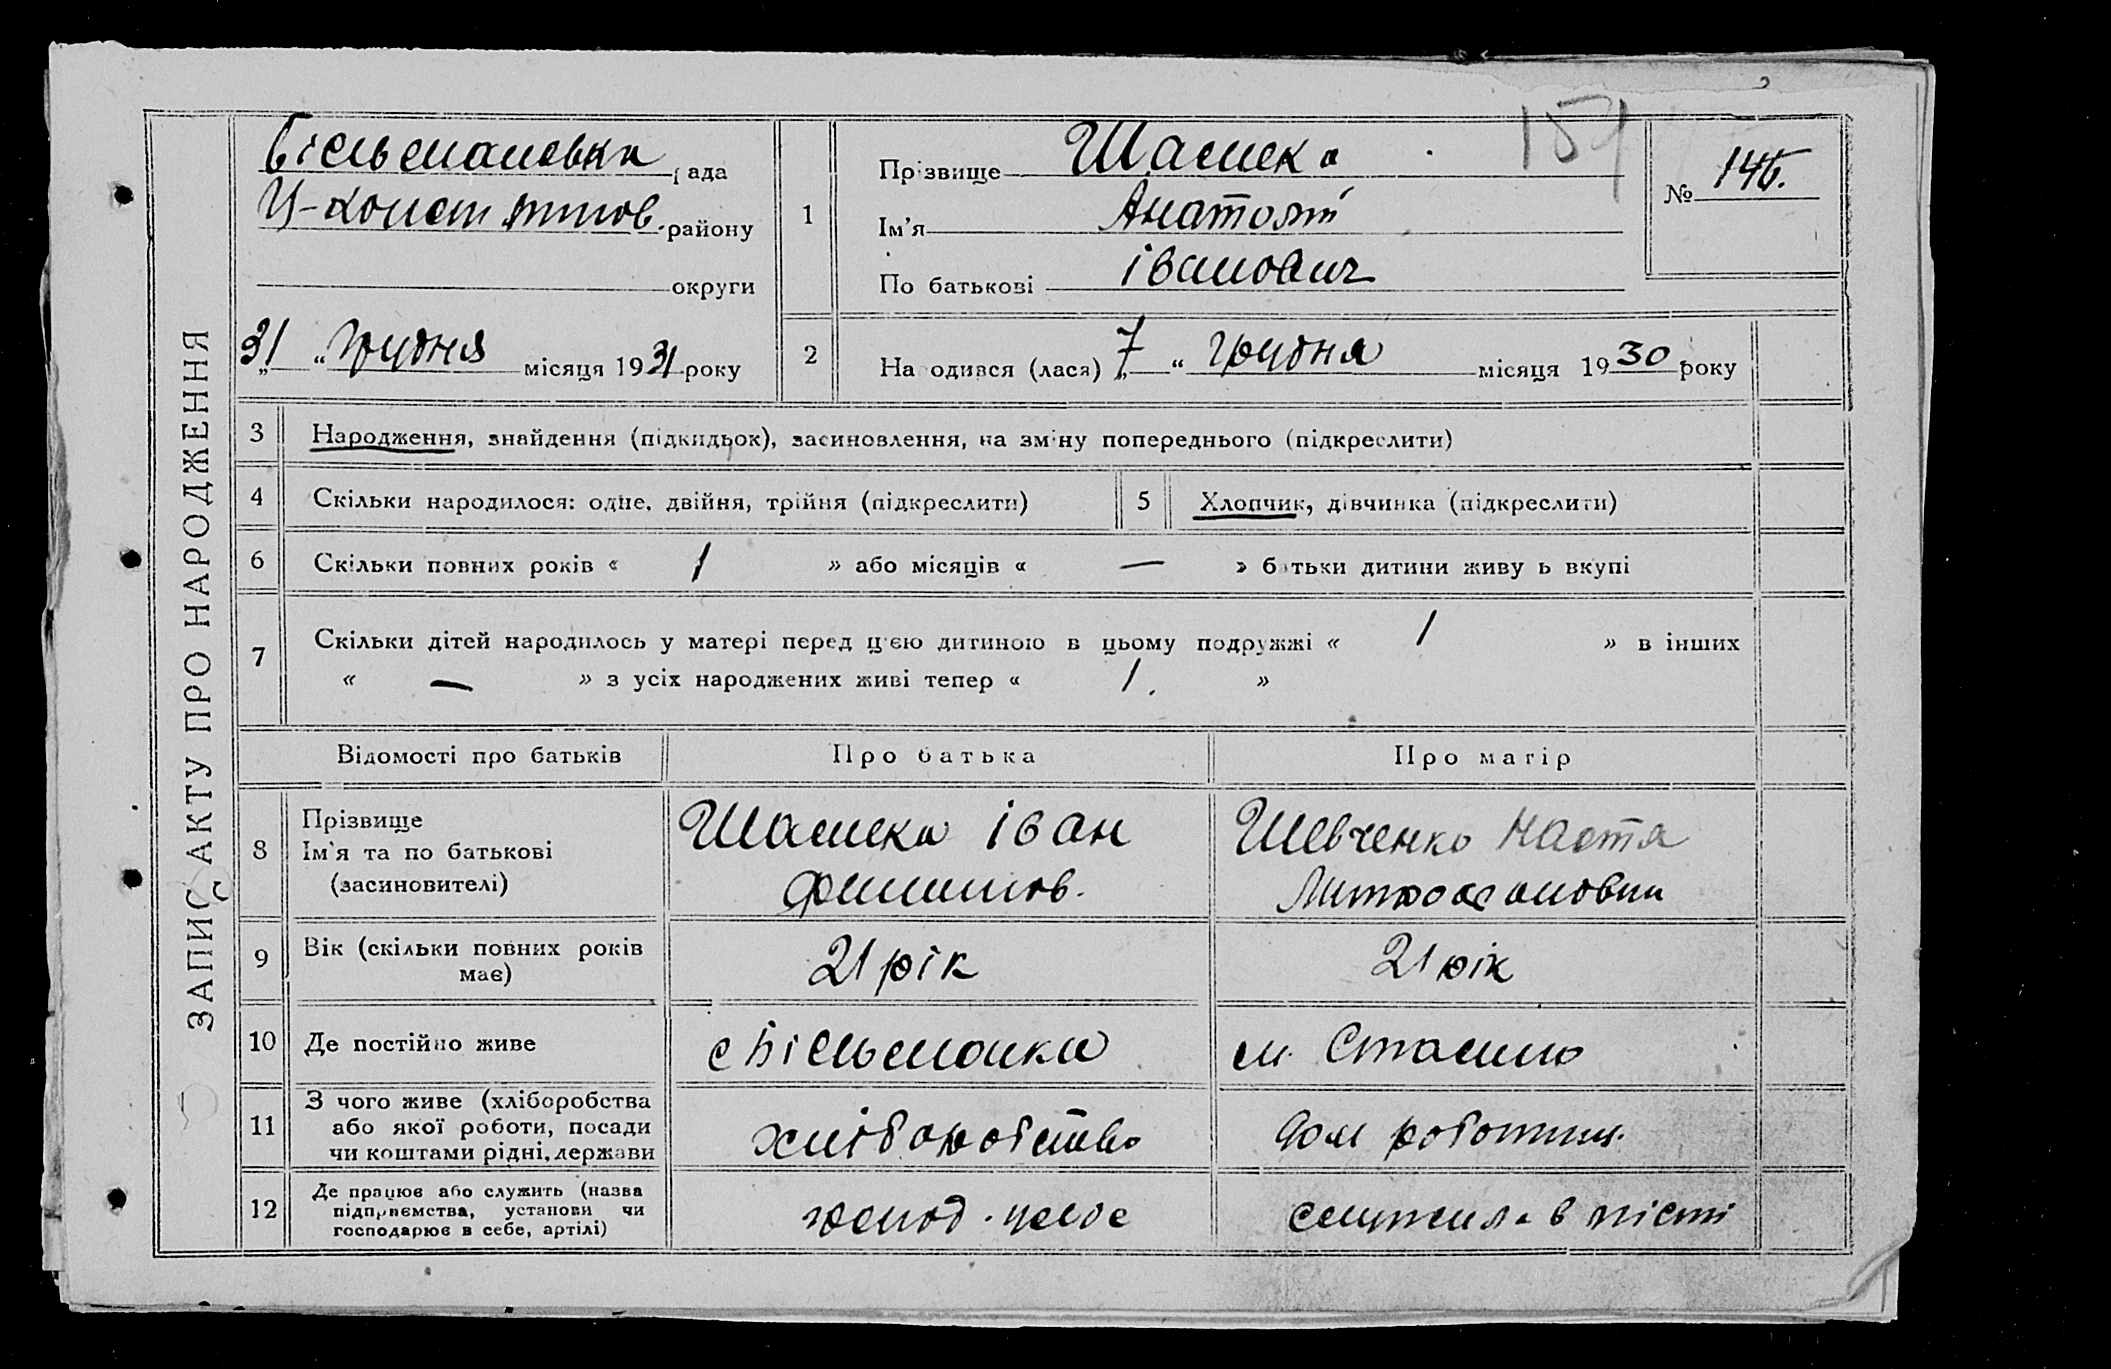 ЗАПИС АКТУ ПРО НАРОДЖЕННЯ
рада
району
округи
31 " Грудня місяця 1931 року
157
№ 146.
1
Прізвище Шамека
Ім'я Анатолій
По батькові Іванович
2 Народився (лася) „ 7 “ Грудня місяця 1930 року
3 Народження, знайдення (підкидьок), засиновлення, на зміну попереднього (підкреслити)
4 Скільки народилося: одне, двійня, трійня (підкреслити)
5 Хлопчик, дівчинка (підкреслити)
6 Скільки повних років « 1 » або місяців « — » батьки дитини живуть вкупі
7 Скільки дітей народилось у матері перед ц'єю дитиною в цьому подружжі « 1 » в інших
« — » з усіх народжених живі тепер « 1. »
Відомості про батьків Про батька Про матір
8 Прізвище
Ім'я та по батькові
(засиновителі)
Шамека Іван
Филипов.
Шевченко Настя
Митрофановна
9 Вік (скільки повних років
має)
21 рік
21 рік
10 Де постійно живе
с
м.
11 З чого живе (хліборобства
або якої роботи, посади
чи коштами рідні, держави
хліборобство
Дом робітниц.
12 Де працює або служить (назва
підприємства, установи чи
господарює в себе, артілі)
господ.
служила в місті